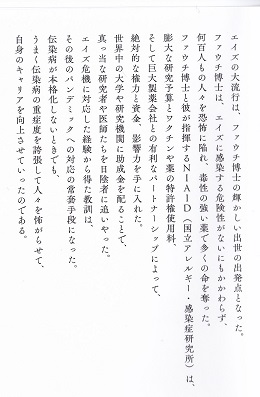 エイズの大流行は、ファウチ博士の輝かしい出世の出発点となった。
ファウチ博士は、エイズに感染する危険性がないにもかかわらず、
何百人もの人々を恐怖に陥れ、毒性の強い薬で多くの命を奪った。
ファウチ博士と彼が指揮するNIAID(国立アレルギー・感染症研究所)は、
膨大な研究予算とワクチンや薬の特許権使用料、
そして巨大製薬会社との有利なパートナーシップによって、
絶対的な権力と資金、影響力を手に入れた。
世界中の大学や研究機関に助成金を配ることで、
真っ当な研究者や医師たちを日陰者に追いやった。
エイズ危機に対応した経験から得た教訓は、
その後のパンデミックへの対応の常套手段になった。
伝染病が本格化しないときでも、
うまく伝染病の重症度を誇張して人々を怖がらせて、
自身のキャリアを向上させていったのである。